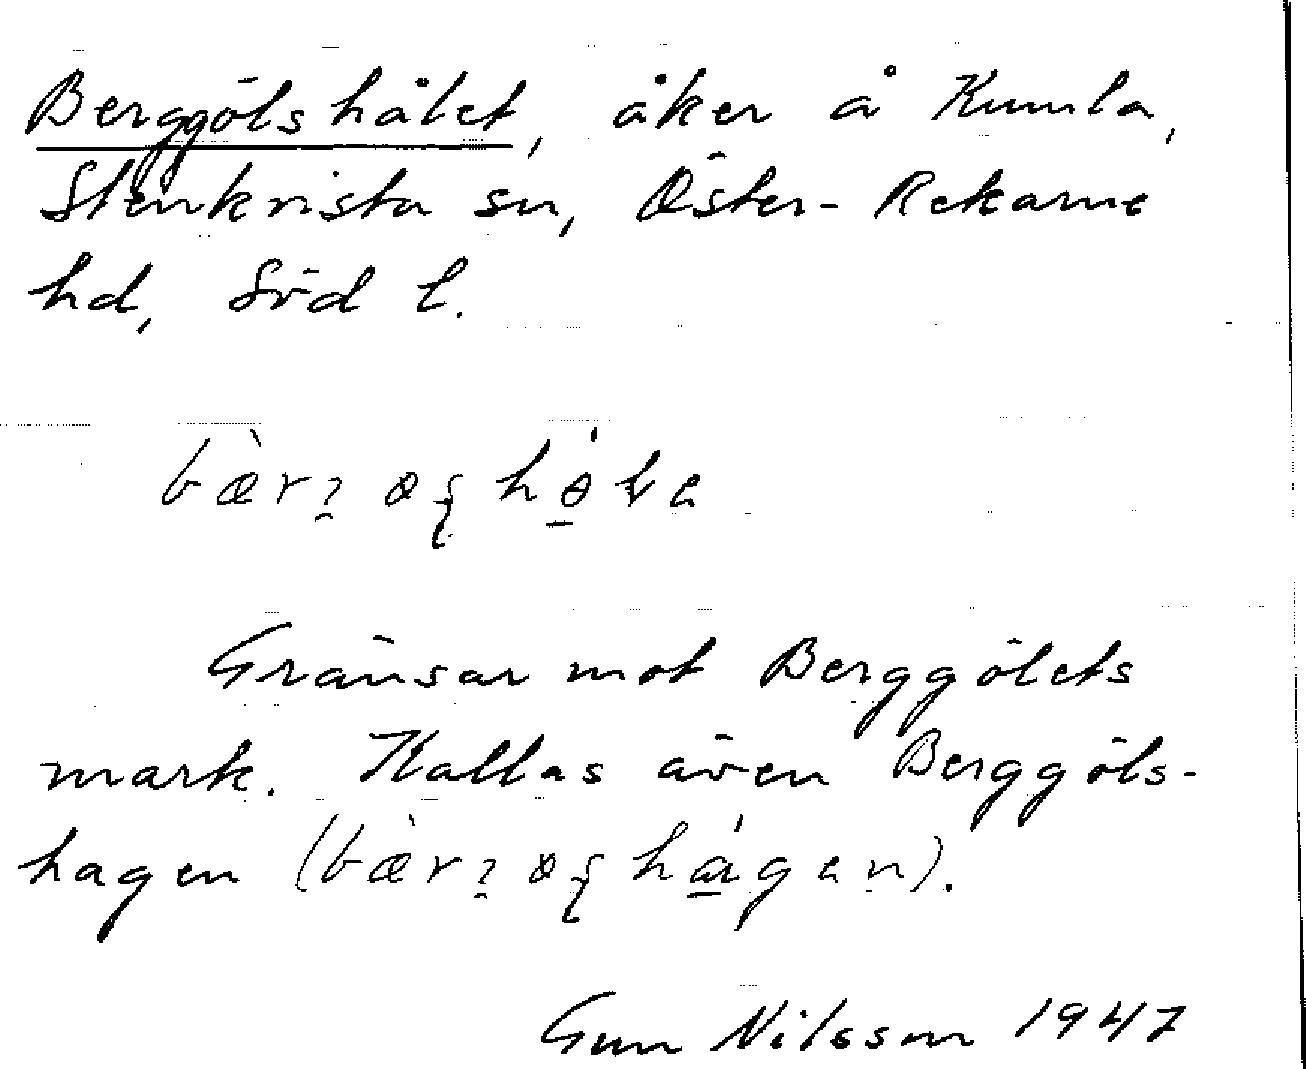 Berggölshålet, åker å Kumla,
Stenkvista sn, Öster-Rekarne
hd, Söd l.
Gränsar mot Berggölets
mark. Kallas även Berggöls-
hagen
Gun Nilsson 1947